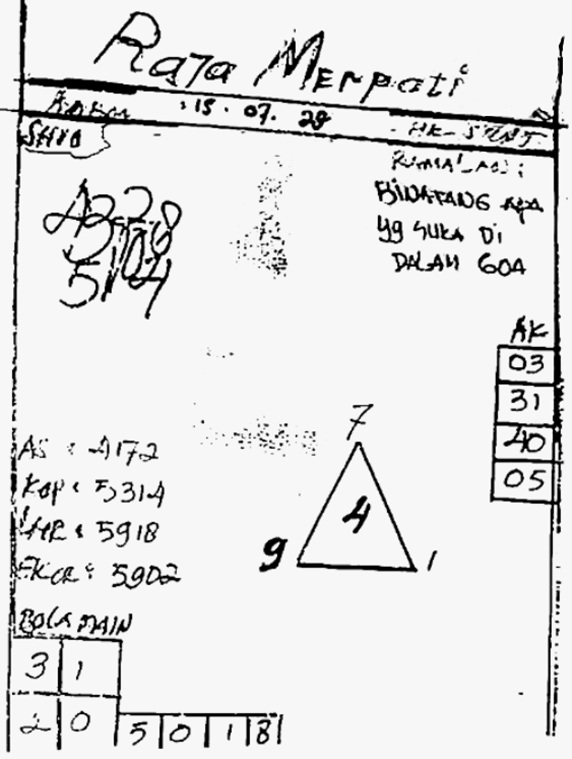 Raja Merpati
: 15 . 07 .
SHIO
RAMALAN :
BINATANG APA
yg SUKA Di
DALAM GOA
AK
03
31
40
05
7
4
9 1
AS : 4172
KOP : 5314
: 5918
EKOR : 5902
POLA MAIN
3 1
2 0
5 0 1 8